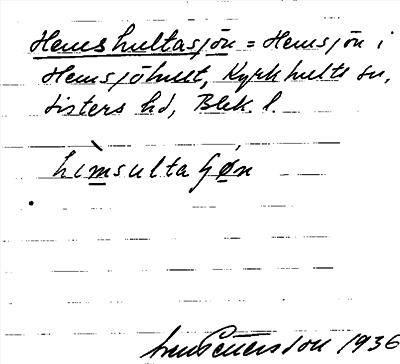 Hemshultasjön = Hemsjön i
Hemsjöhult, Kyrkhults sn,
Listers hd, Blek. l.
hemsulta
Pettersson 1936